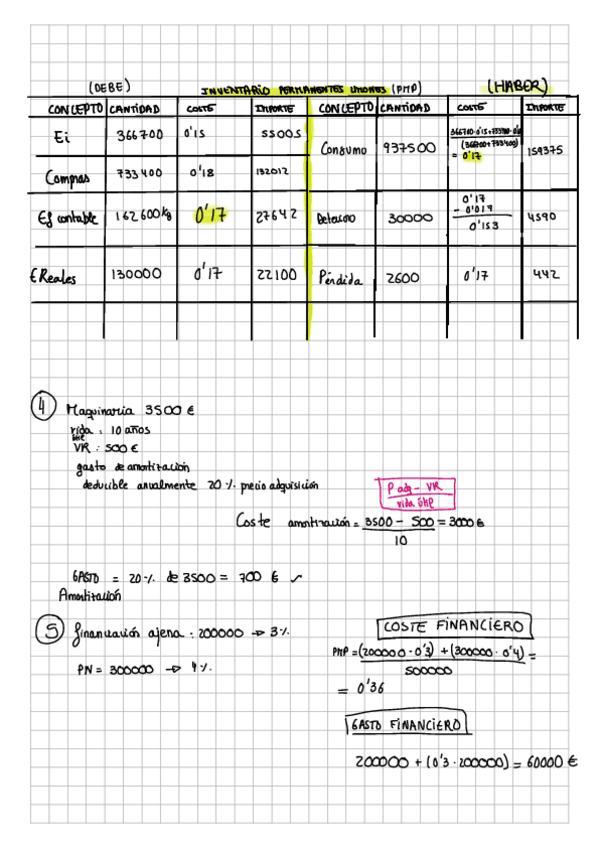 (DEBE) INVENTARIO PERMANENTES LIMONES (PMP) (HABER)
CONCEPTO CANTIDAD COSTE IMPORTE CONCEPTO CANTIDAD COSTE IMPORTE
Ei 366700 0'15 55005 Consumo 937500 (366700+733400) = 0'17 159375
Compras 733400 0'18 132012
Ef contable 162600kg 0'17 27642 Deterioro 30000 0'17 - 0'017 0'153 4590
E Reales 130000 0'17 22100 Pérdida 2600 0'17 442
4 Maquinaria 3500 €
vida útil : 10 años
VR : 500 €
gasto de amortización
deducible anualmente 20 %. precio adquisición
P adq - VR
vida útil
Coste amortización = 3500 - 500 = 3000 €
10
GASTO = 20 %. de 3500 = 700 € ✓
Amortización
5 financiación ajena : 200000 → 3 %.
COSTE FINANCIERO
PMP = (200000 · 0'3) + (300000 · 0'4) =
500000
PN = 300000 → 4 %.
= 0'36
GASTO FINANCIERO
200000 + (0'3 · 200000) = 60000 €